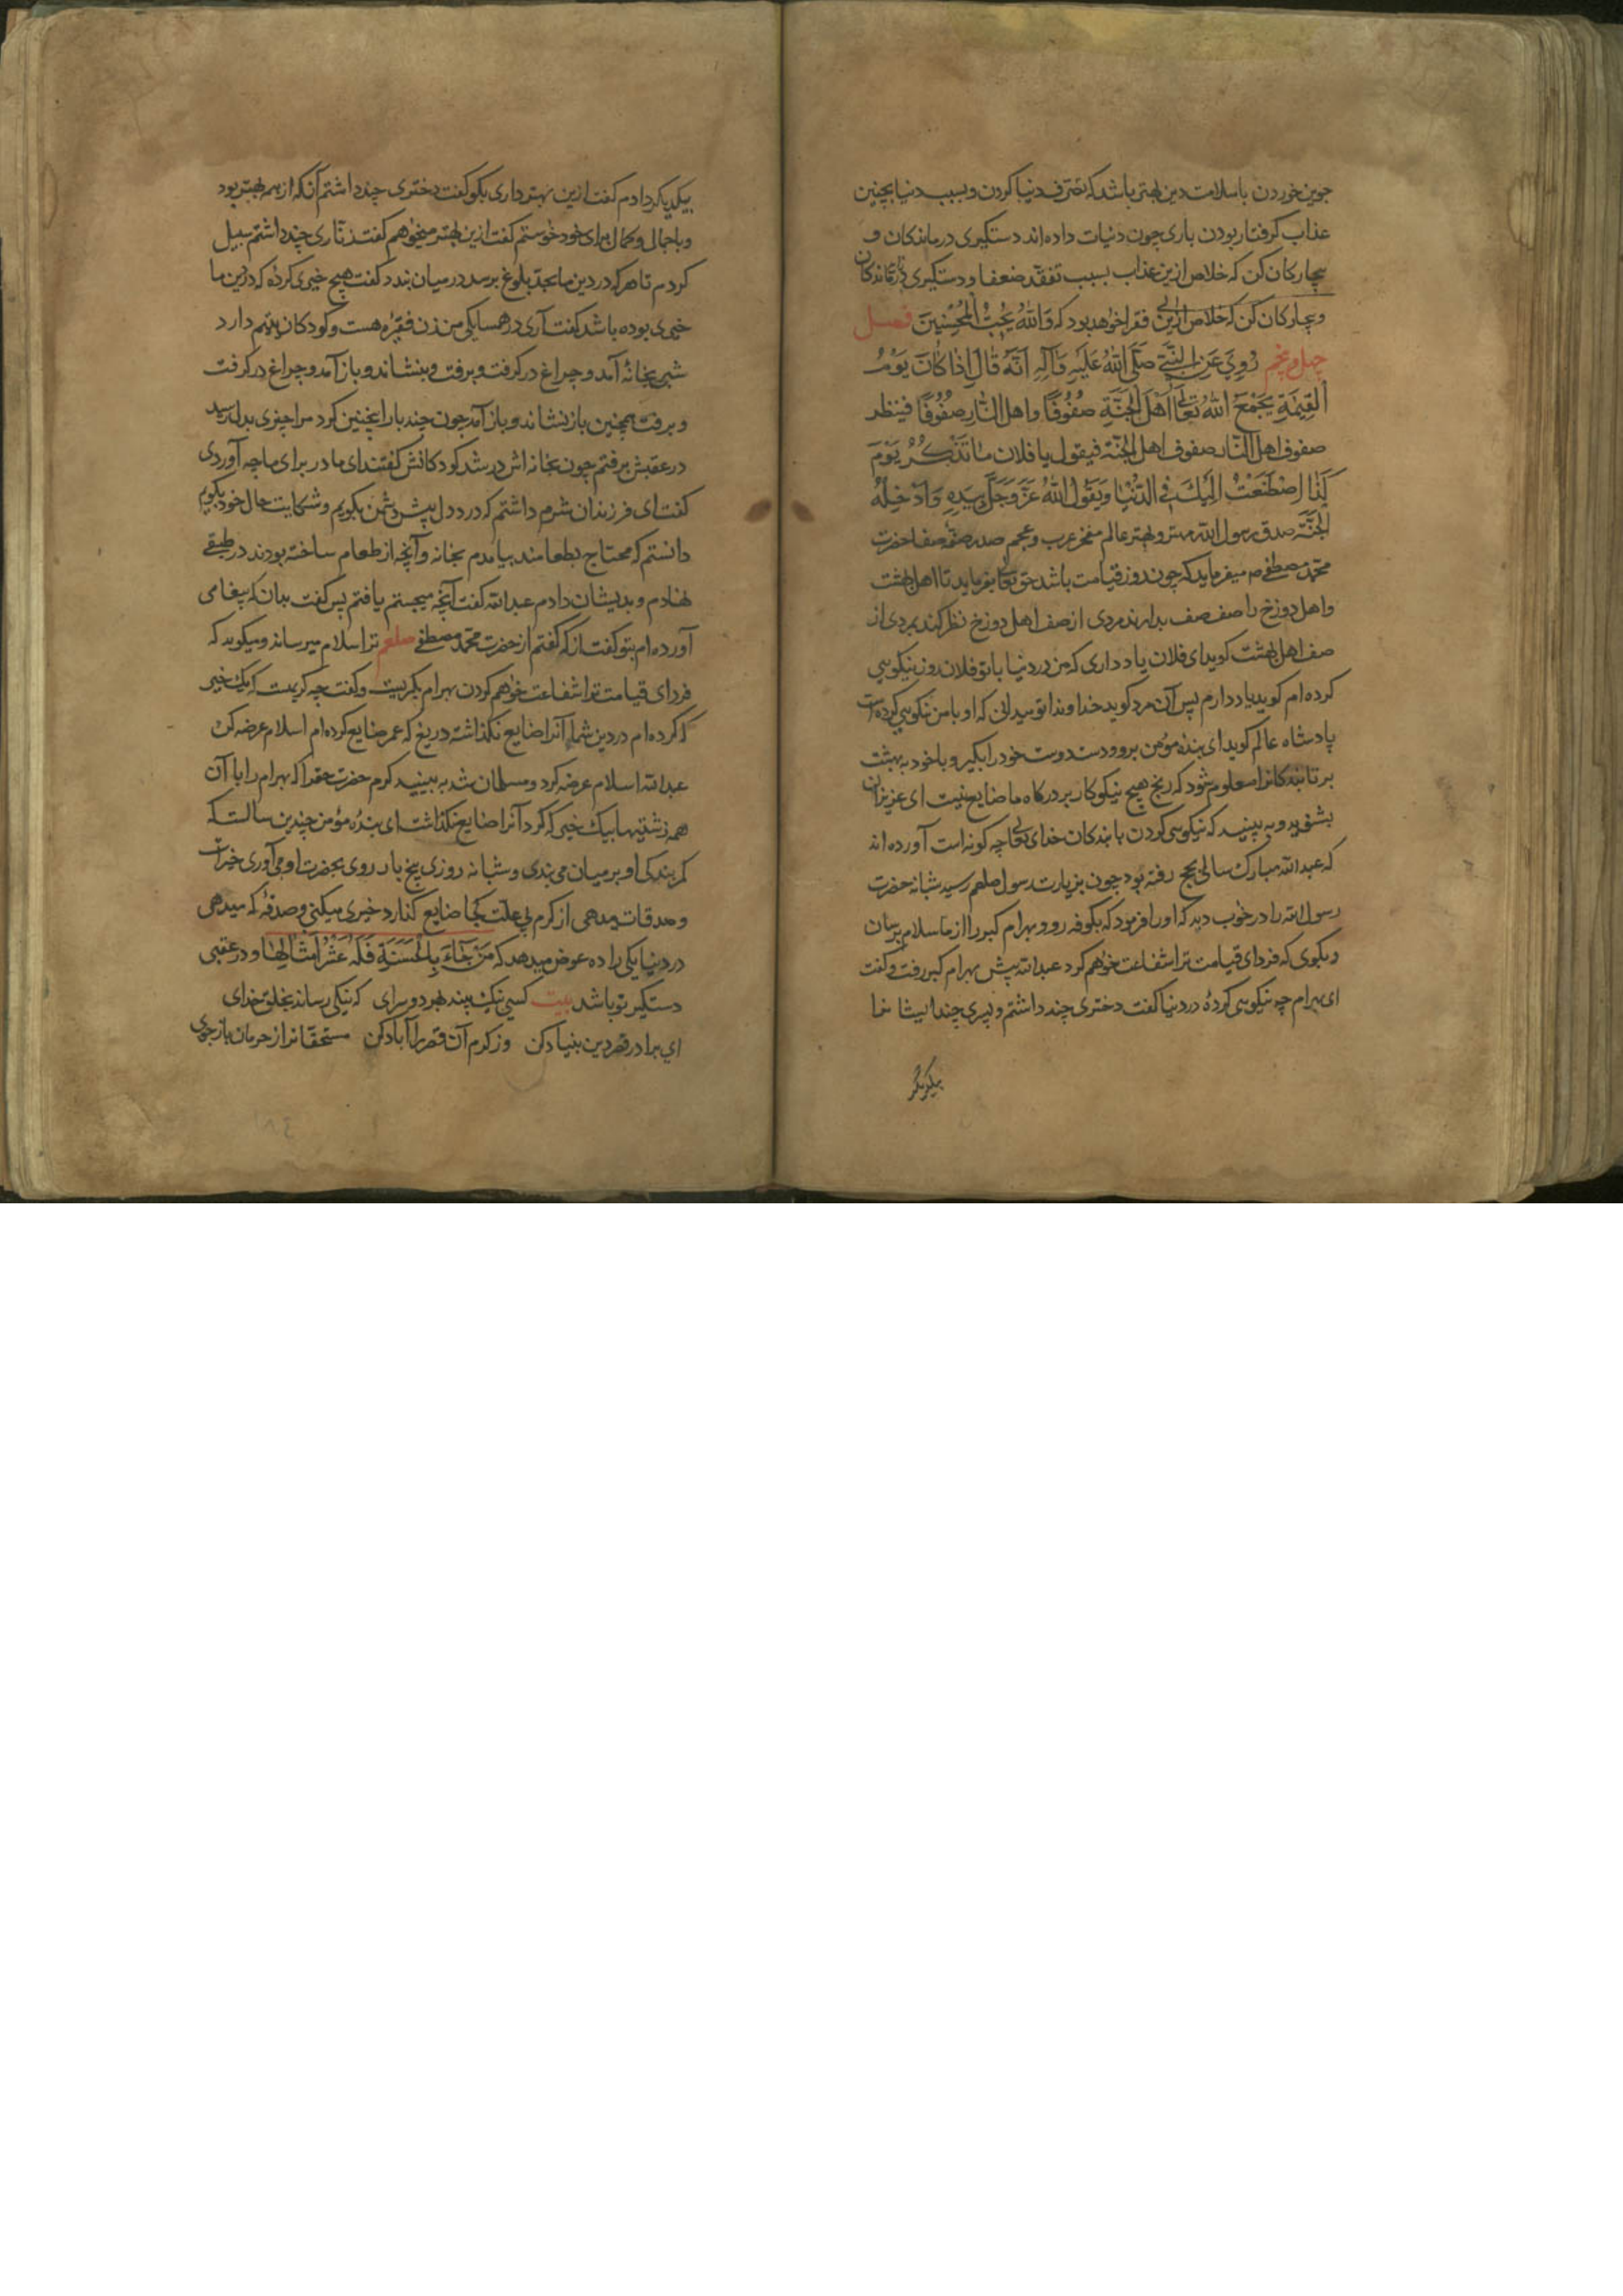 جوین خوردن با سلامت دین بهتر باشد که تصرف دنیا کردن و بسبب دنیا بچنین
عذاب گرفتار بودن باری چون دنیات داده‌اند دستگیری درماندکان و
بیچارکان کن که خلاص ازین عذاب بسبب تفقد ضعفا و دستکیری درماندکان
و بیچارکان کن که خلاص ازین فقرا خواهد بود که وَاللهُ یُحِبُّ الْمُحْسِنِینَ فصل
چهل و پنجم رُوِیَ عَنِ النَّبِیِّ صَلَّی اللهُ عَلَیْهِ وَآلِهِ اَنَّهُ قَالَ اِذَا کَانَ یَوْمُ
الْقِیٰمَةِ یَجْمَعُ اللهُ تَعَالٰی اَهْلَ الْجَنَّةِ صُفُوفًا واهل النّار صُفُوفًا فینظر
صفوف اهل النّار صفوف اهل الجنّة فیقول یا فلان ما تَذْکُرُ یَوْمَ
کَذَا اِصْطَنَعْتُ اِلَیْكَ فِی الدُّنْیَا وَیَقُولُ اللهُ عَزَّ وَجَلَّ بِیَدِهِ وَاَدْخِلْهُ
الْجَنَّةَ صدق رسول الله مهتر و بهتر عالم مفخر عرب و عجم صدر صفّهٔ صفا حضرت
محمّد مصطفی ص میفرماید که چون روز قیامت باشد حق تعالی بفرماید تا اهل بهشت
و اهل دوزخ را صف صف بدارند مردی از صف اهل دوزخ نظر کند بمردی از
صف اهل بهشت کوید ای فلان یاد داری که من در دنیا با تو فلان روز نیکویی
کرده‌ام کوید یاد دارم پس آن مرد کوید خداوندا تو میدانی که او با من نیکویی کرده است
پادشاه عالم کوید ای بنده مؤمن برو و دست دوست خود را بگیر و با خود به بهشت
بر تا بندکانرا معلوم شود که رنج هیچ نیکوکار بر درکاه ما ضایع نیست ای عزیزان
بشنوید و به بینید که نیکویی کردن با بندکان خدای تعالی چه کونه است آورده‌اند
که عبد الله مبارك سالی بحج رفته بود چون بزیارت رسول صلعم رسید شبانه حضرت
رسول الله را در خواب دید که او را فرمود که بکوفه رو و بهرام کبر را از ما سلام برسان
و بکوی که فردای قیامت ترا شفاعت خواهم کرد عبد الله پیش بهرام کبر رفت و کفت
ای بهرام چه نیکویی کردهٔ در دنیا کفت دختری چند داشتم و پسری چند ایشانرا
بیکدیکر
بیکدیکر دادم کفت ازین بهتر داری بکو کفت دختری چند داشتم آنکه از همه بهتر بود
و با جمال و کمال برای خود خواستم کفت ازین بهتر میخواهم کفت زنّاری چند داشتم سبیل
کردم تا هر که در دین ما بحدّ بلوغ برسد در میان بندد کفت هیچ خیری کردهٔ که در دین ما
خیری بوده باشد کفت آری در همسایکی من زن فقیره هست و کودکان یتیم دارد
شبی بخانهٔ آمد و چراغ در کرفت و برفت و بنشاند و باز آمد و چراغ در کرفت
و برفت همچنین باز نشاند و باز آمد چون چند بار اینچنین کرد مرا چیزی بدل رسید
در عقبش برفتم چون بخانه اش در شد کودکانش کفتند ای مادر برای ما چه آوردی
کفت ای فرزندان شرم داشتم که درد دل پیش دشمن بکویم و شکایت حال خود بکویم
دانستم که محتاج بطعامند بیامدم بخانه و آنچه از طعام ساخته بودند در طبقی
نهادم و بدیشان دادم عبد الله کفت آنچه میجستم یافتم پس کفت بدان که پیغامی
آورده‌ام بتو کفت از که کفتم از حضرت محمّد مصطفی صلعم ترا سلام میرساند و میکوید که
فردای قیامت ترا شفاعت خواهم کردن بهرام بکریست و کفت چه کریمست که یك خیر
که کرده‌ام در دین شما آنرا ضایع نکذاشته دریغ که عمر ضایع کرده‌ام اسلام عرضه کن
عبد الله اسلام عرضه کرد و مسلمان شد به بینید کرم حضرت حق را که بهرام را با آن
همه زشتیها بیك خیر که کرد آنرا ضایع نکذاشت ای بندهٔ مؤمن چندین سالست که
کمر بندکی او بر میان می بندی و شبانه روزی پنج بار روی بحضرت او می آوری خیرات
و صدقات میدهی از کرم بی علّت کجا ضایع کذارد خیری میکنی و صدقهٔ که میدهی
در دنیا یکی را ده عوض میدهد که مَنْ جَآءَ بِالْحَسَنَةِ فَلَهُ عَشْرُ اَمْثَالِهَا و در عقبی
دستکیر تو باشد بیت کسی نیك بیند بهر دو سرای که نیکی رساند بخلق خدای
ای برادر قصر دین بنیاد کن وز کرم آن قصر را آباد کن مستحقانرا از حرمان باز جوی